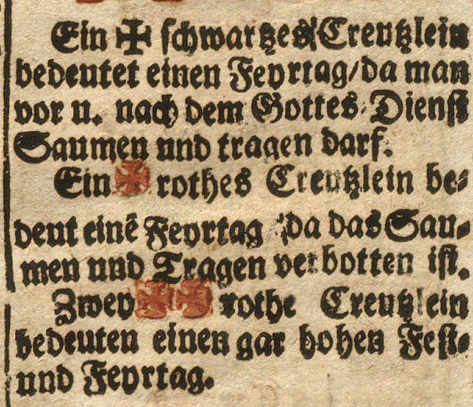 Ein ✠ schwartzes Creutzlein
bedeutet einen Feyrtag/da man
vor u. nach dem Gottes-Dienst
Saumen und tragen darf.
Ein ✠ rothes Creutzlein be-
deut einẽ Feyrtag / da das Sau-
men und Tragen verbotten ist.
Zwey ✠✠ rothe Creutzlein
bedeuten einen gar hohen Fest-
und Feyrtag.